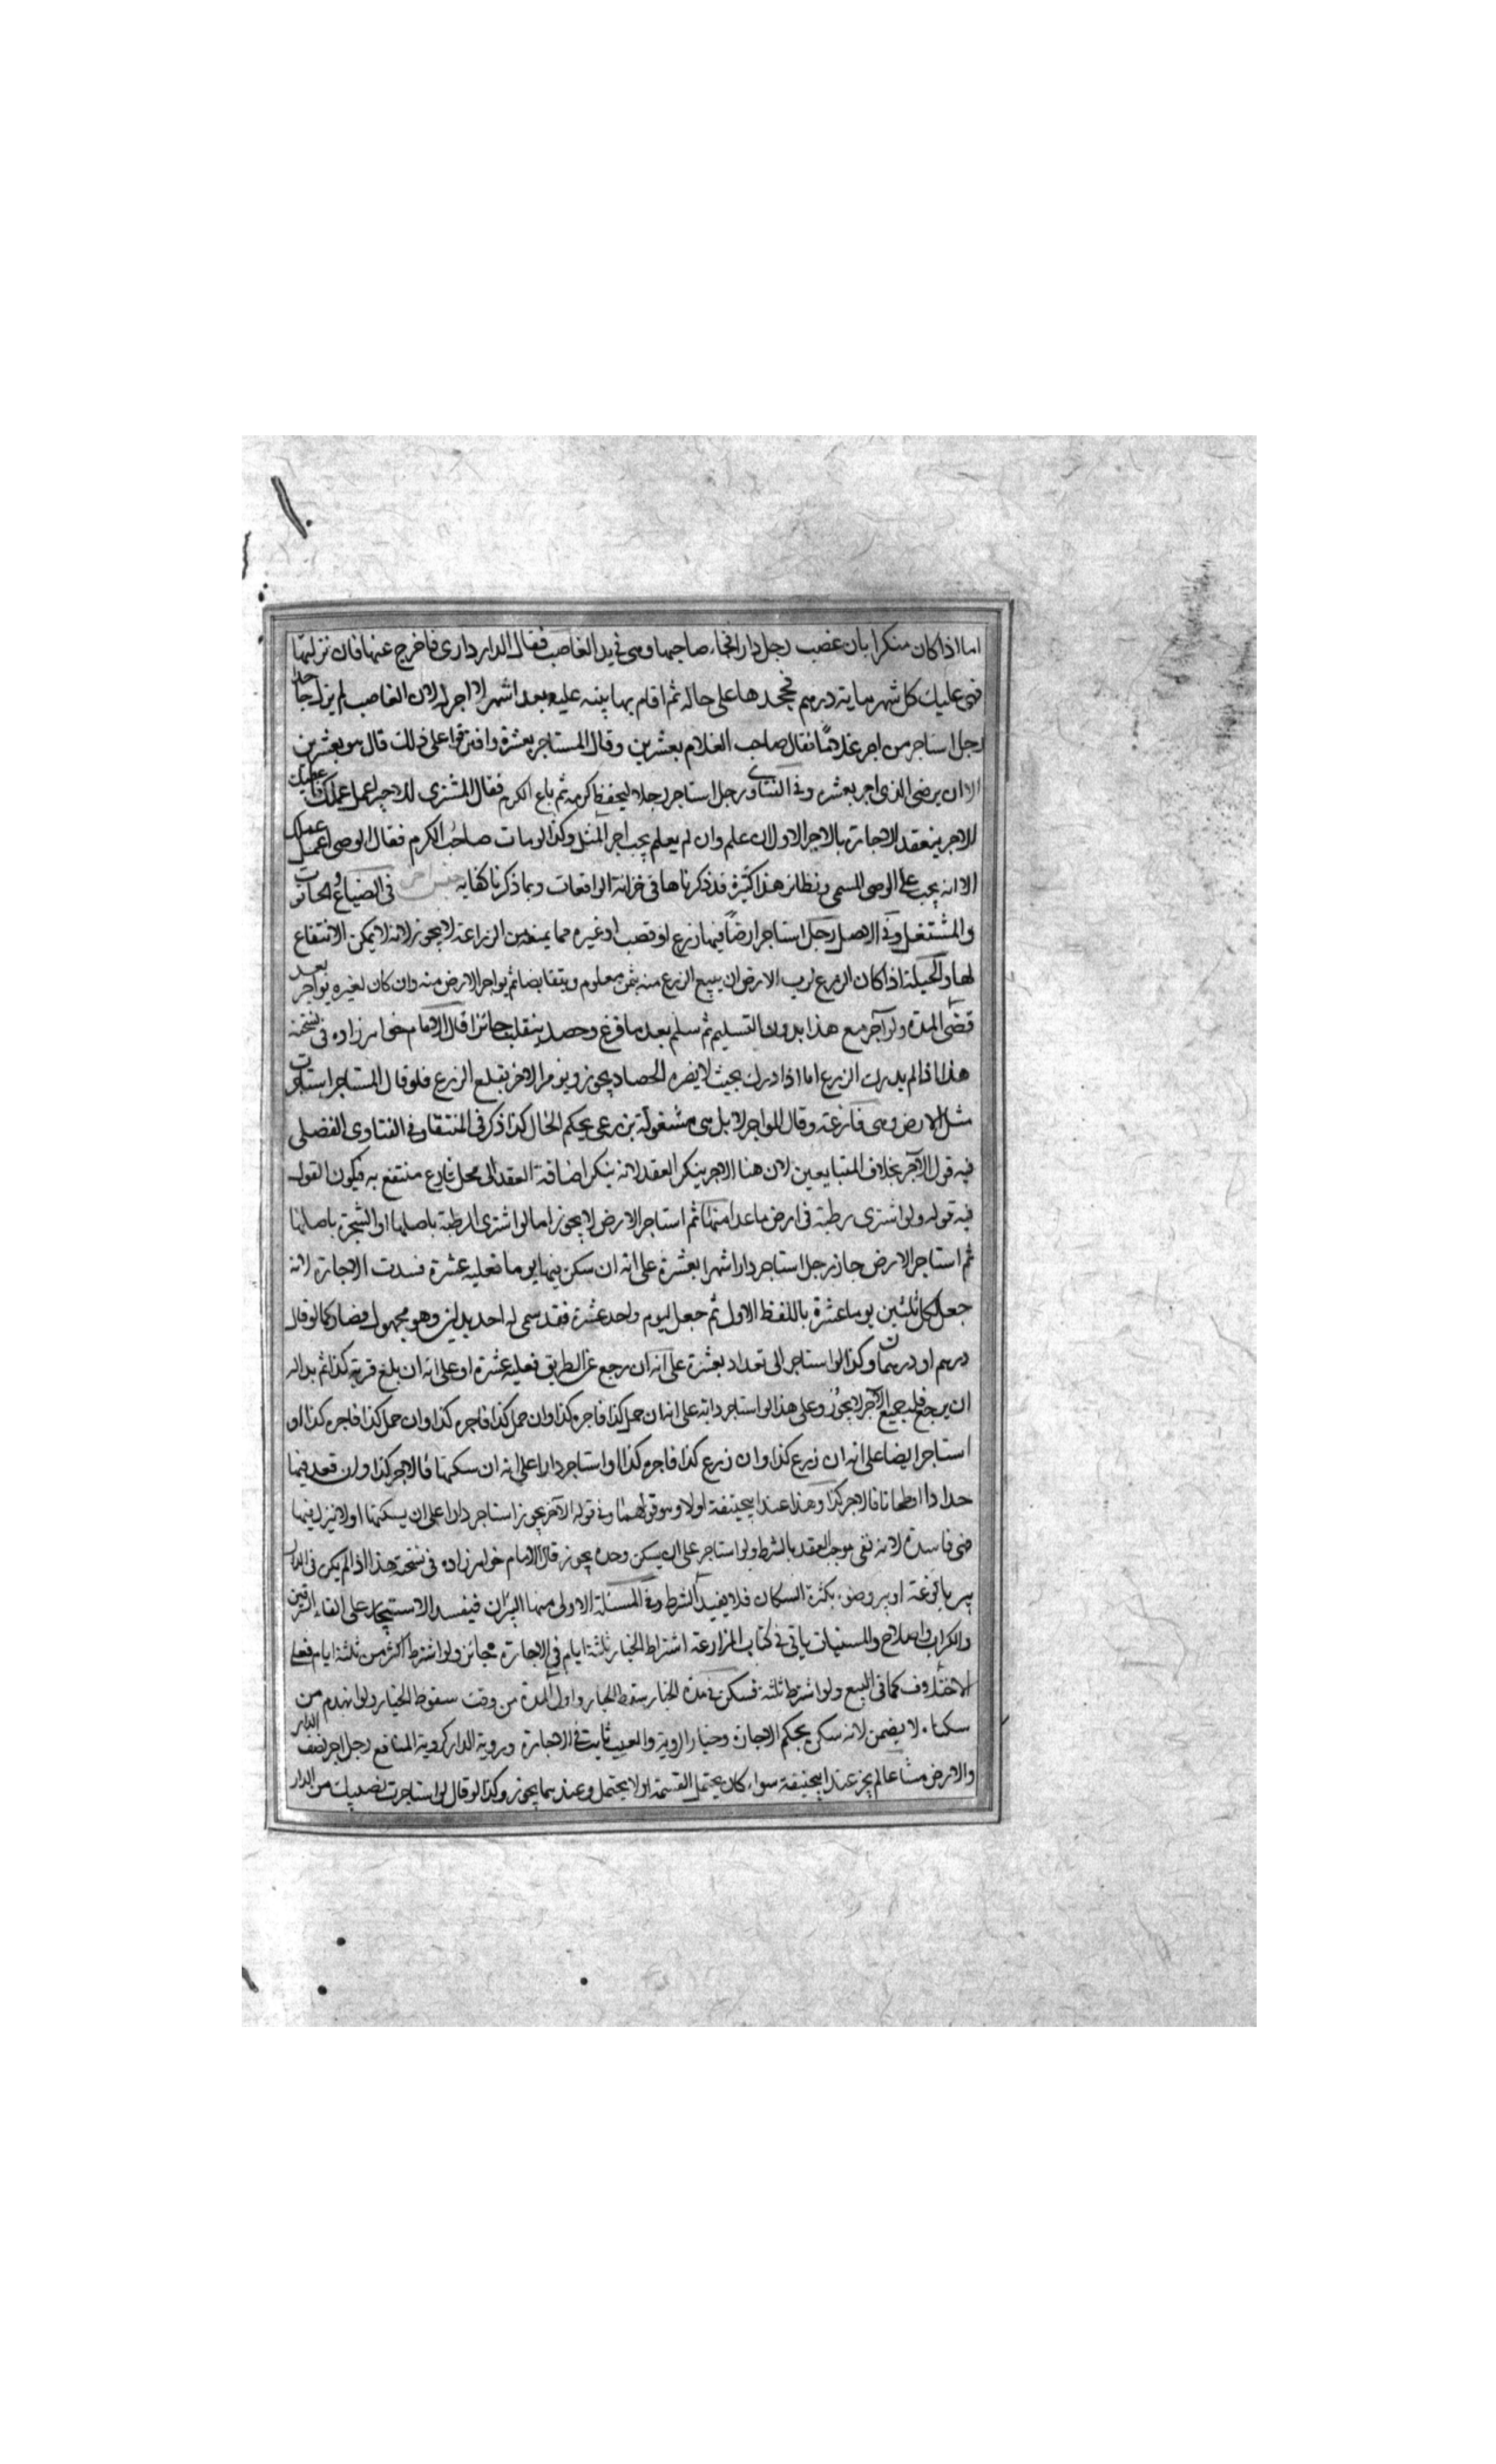 اما اذا كان منكرا بان غصب رجل دارا فجاء صاحبها وهى فى يد الغاصب فقال الدار دارى فاخرج عنها فان نزلتها
فهى عليك كل شهر بماية درهم فجحدها على حاله ثم اقام بها بينه عليه بعد اشهر لا اجر له لان الغاصب لم يزل جاحدا
رجل استاجر من اجر غلامًا فقال صاحب الغلام بعشرين وقال المستاجر بعشرة وافترقا على ذلك قال هو بعشرين
الا ان يرضى الذى اجر بعشره وفى الفتاوى رجل استاجر رجلا ليحفظ كرمه ثم باع الكرم فقال المشترى للاجير اعمل عملك فاعطيك
الاجر ينعقد الاجارة بالاجر الاول ان علم وان لم يعلم يجب اجر المثل وكذا لو مات صاحب الكرم فقال الوصى اعمل عملك
الا انه يجب على الوصى المسمى ونظائر هذا كثيرة قد ذكرناها فى خزانة الواقعات وبما ذكرنا كفايه جنس اخر فى الضياع والحانوت
والمشتغل وفى الاصل رجل استاجر ارضًا فيها زرع او قصب او غيره مما يمنع من الزراعة لا يجوز لانه لا يمكن الانتفاع
لها والحيلة اذا كان الزرع لرب الارض ان يبيع الزرع منه بثمن معلوم ويتقابضا ثم يواجر الارض منه وان كان لغيره يواجر بعد
قضى المدة ولو آجر مع هذا بدون التسليم ثم سلم بعد ما فرغ وحصد ينقلب جائزا قال الامام خواهر زاده فى نسخته
هذا اذا لم يدرك الزرع اما اذا ادرك بحيث لا يضره الحصاد يجوز ويومر الاخر بقلع الزرع فلو قال المستاجر استاجرت
مثل الارض وهى فارغة وقال المواجر لا بل هى مشغولة بزرعى يحكم الحال كذا ذكر فى المنتقا وفى الفتاوى الفضلى
فيه قول الآجر بخلاف المتبايعين لان هنا الاجر ينكر العقد لانه ينكر اضافة العقد الى محل فارغ منتفع به فيكون القول
فيه قوله ولو اشترى رطبة فى ارض ما عدا منها ثم استاجر الارض لا يجوز اما لو اشترى الرطبة باصلها او الشجرة باصلها
ثم استاجر الارض جاز رجل استاجر دارا شهرا بعشرة على انه ان سكن فيها يوما فعليه عشرة فسدت الاجارة لانه
جعل لكل ثلثين يوما عشرة باللفظ الاول ثم جعل ليوم واحد عشرة فقد سمى له احد بدلين وهو مجهول فصار كما لو قال
درهم او درهمان وكذا لو استاجر الى بغداد بعشرة على انه ان رجع عن الطريق فعليه عشرة او على انه ان بلغ قرية كذا ثم بدا له
ان يرجع فله جميع الاجر لا يجوز وعلى هذا لو استاجر دابه على انه ان حمل كذا فاجره كذا وان حمل كذا فاجره كذا وان حمل كذا فاجره كذا او
استاجر ارضا على انه ان زرع كذا وان زرع كذا فاجره كذا او استاجر دارا على انه ان سكنها فالاجر كذا وان قعد فيها
حدادا او طحانا فالاجر كذا وهذا عند ابيحنيفة اولا وهو قولهما وفى قوله الآخر يجوز استاجر دارا على ان يسكنها او لا ينزل فيها
فهى فاسدة لانه نفى موجب العقد بالشرط ولو استاجر على ان يسكن وحده يجوز قال الامام خواهر زاده فى نسخته هذا اذا لم يكن فى الدار
بير بالوعة او بير وضو بكثرة السكان فلا يفيد الشرط وفى المسئلة الاولى فيها البيران فيفسد الاستيجار على القاء السرقين
والكراب واصلاح والمسنيات ياتى فى كتاب المزارعة اشتراط الخيار ثلثة ايام فى الاجارة جائز ولو اشترط اكثر من ثلثة ايام فعلى
الاختلاف كما فى البيع ولو اشترط ثلثة فسكن فى مدة الخيار سقط الخيار واول المدة من وقت سقوط الخيار ولو انهدم من
سكناه لا يضمن لانه سكن بحكم الاجارة وخيار الروية والعيب ثابت فى الاجارة وروية الدار كروية المنافع رجل اجر نصف الدار
والارض مشاعا لم يجز عند ابيحنيفة سواء كان يحتمل القسمة او لا يحتمل وعندهما يجوز وكذا لو قال لو استاجرت نصيبك من الدار